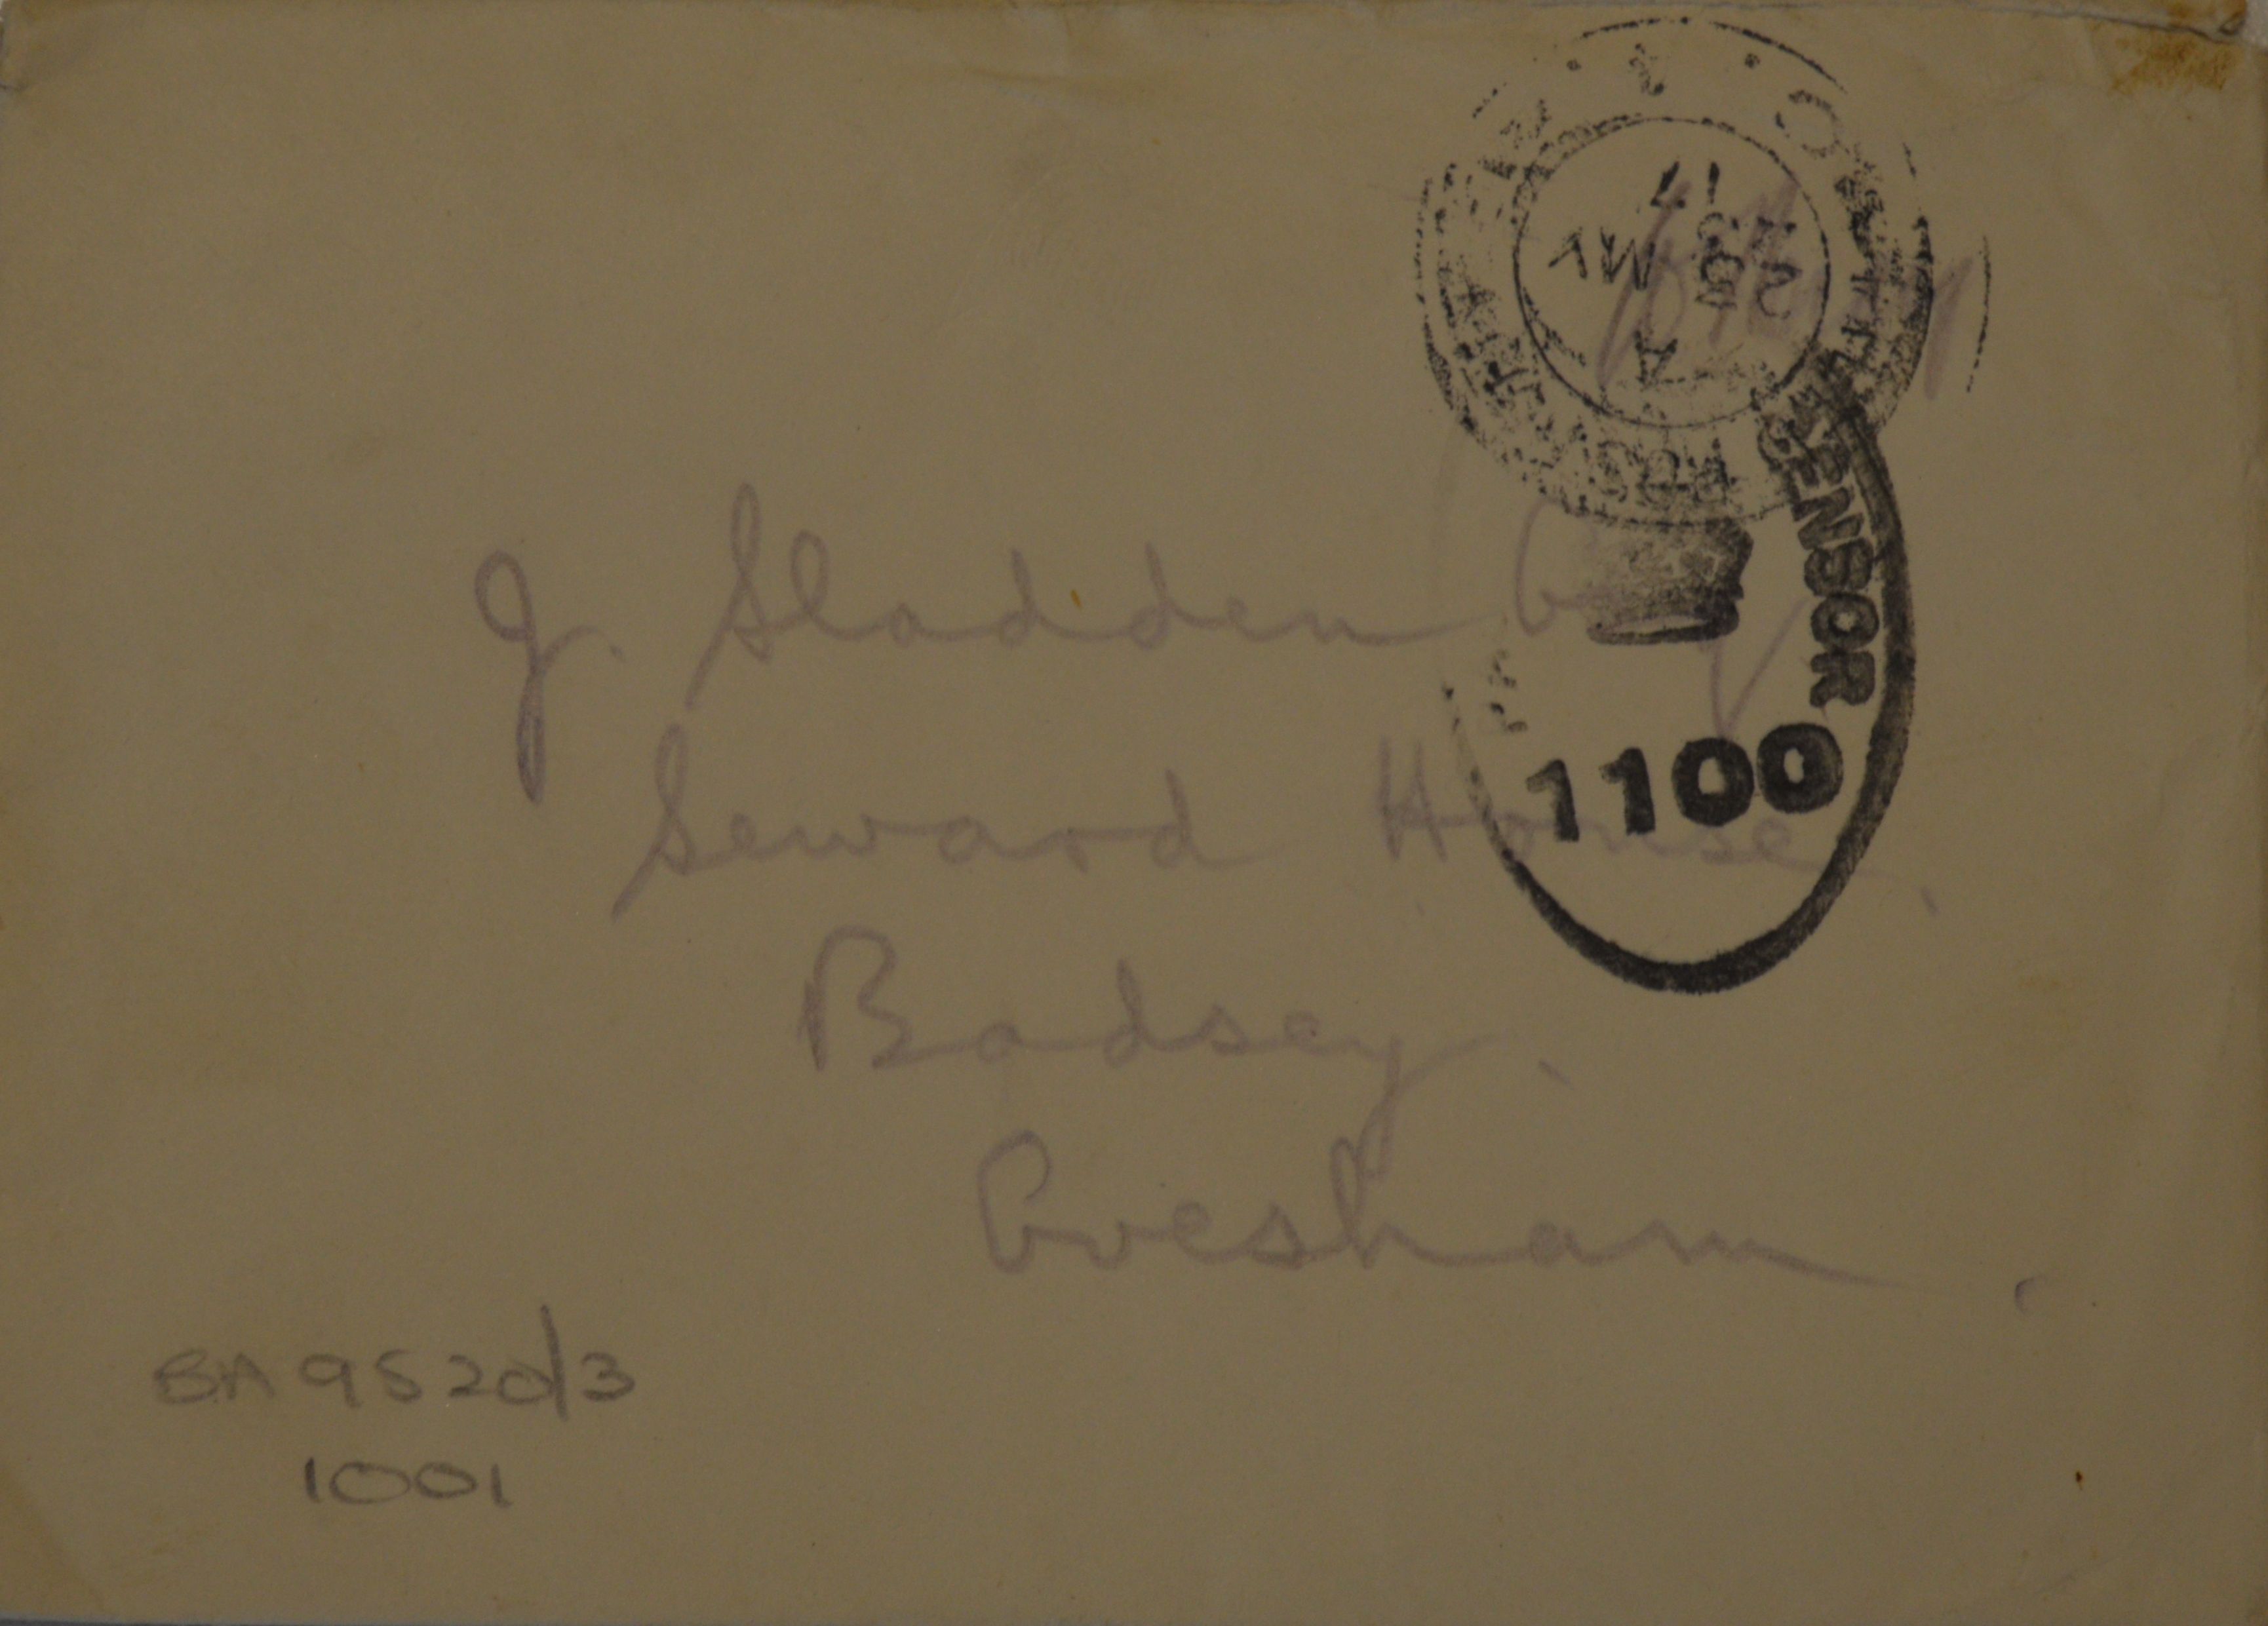 17
23 MY
A
CENSOR
1100
J. Sladden
Seward House.
Badsey.
Evesham.
BA 9520/3
1001